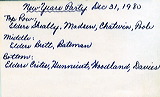 New Years Party Dec 31, 1980
Top Row:
Elders Shally, Madsen, Chatwin, Pook
Middle:
Elders Britt, Bateman
Bottom:
Elders Crites, Hunnicutt, Woodland, Davies